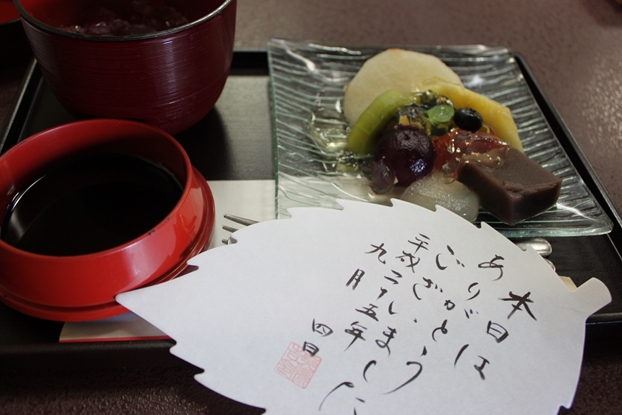 本日は
ありがとう
ございました
平成二十五年
九月四日